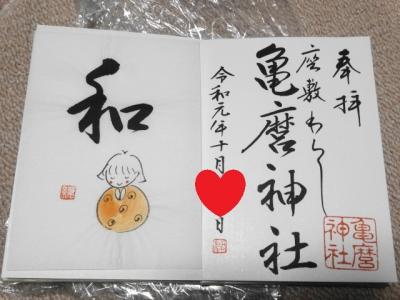 奉拝
座敷わらし
亀麿神社
令和元年十月
日
亀麿
神社
和